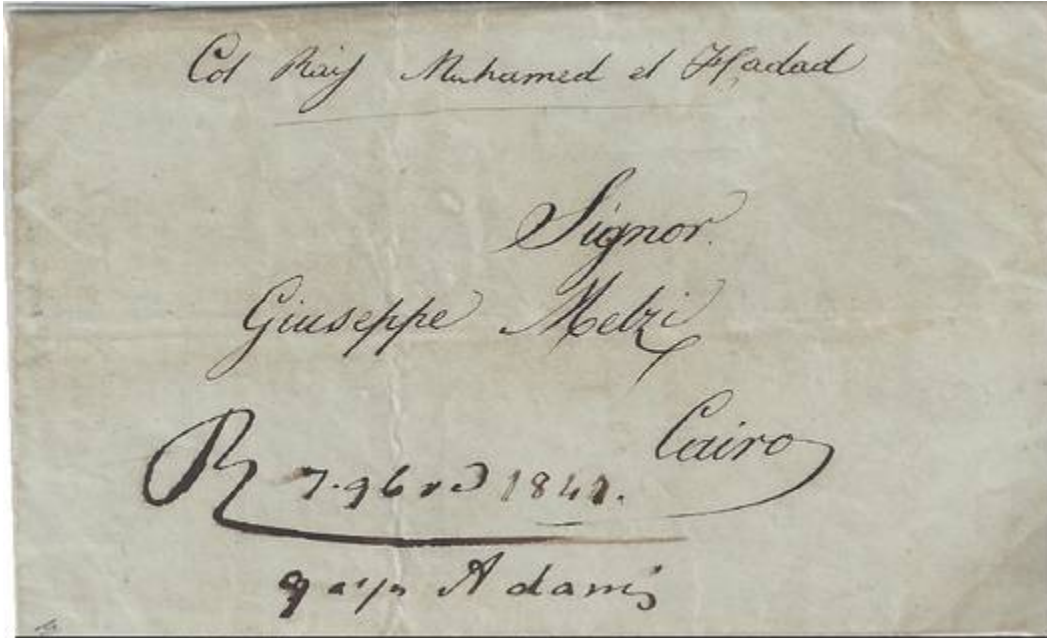 Col Rais Muhamed el Hadad
Signor.
Giuseppe Melzi
Cairo
R 7. 9bre 1841.
Adamis